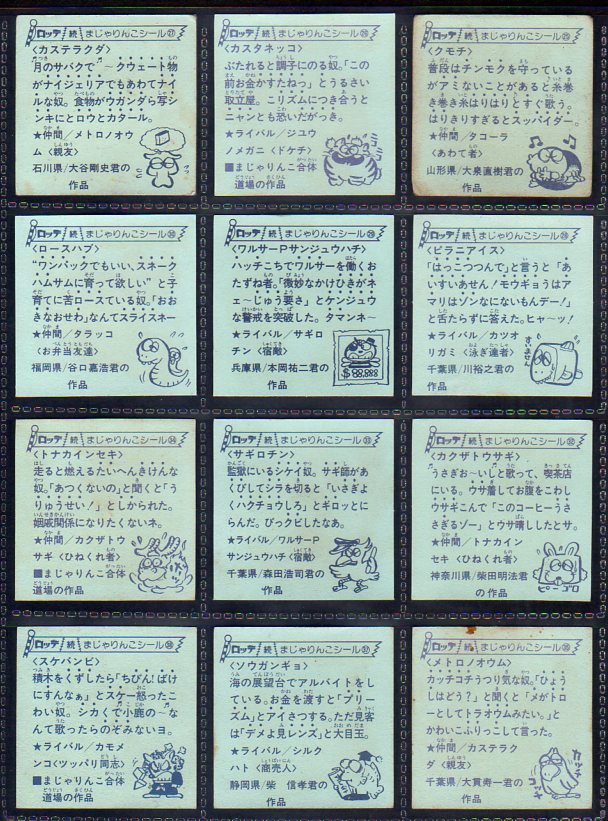 ロッテ 続 まじゃりんこシール㉗
〈カステラクダ〉
月のサバクで〜クウェート物
がナイジェリアでもあわてナイ
ルな奴。食物がウガンダら写シ
ンキにとロウとカタール。
★仲間/メトロノオウ
ム〈親友〉
石川県/大谷剛史君の
作品
ロッテ 続 まじゃりんこシール
〈カスタネッコ〉
ぶたれると調子にのる奴。「この
前お金かすたねっ」とうるさい
取立屋。こリズムにつき合うと
ニャンとも恐いだがっき。
★ライバル/ジユウ
ノメガニ〈ドケチ〉
■まじゃりんこ合体
道場の作品
ロッテ 続 まじゃりんこシール
〈クモチ〉
普段はチンモクを守っている
がアミないことがあると糸巻
き巻き糸はりはりとすぐ歌う。
はりきりすぎるとスッパイダー。
★仲間/タコーラ
〈あわて者〉
山形県/大泉直樹君の
作品
ロッテ 続 まじゃりんこシール㉚
〈ロースハブ〉
"ワンパックでもいい、スネーク
ハムサムに育って欲しい"と子
育てに苦ロースている奴。「おお
きなおせわ」なんてスライスネー
★仲間/タラッコ
〈お弁当友達〉
福岡県/谷口嘉浩君の
作品
ロッテ 続 まじゃりんこシール㉙
〈ワルサーPサンジュウハチ〉
ハッチこちでワルサーを働くお
たずね者。「微妙なかけひきがネ
ェ〜じゅう要さ」とケンジュウ
な警戒を突破した。タマンネ〜
★ライバル/サギロ
チン〈宿敵〉
兵庫県/本岡祐二君の
作品
$88,888
ロッテ 続 まじゃりんこシール㉘
〈ピラニアイス〉
「はっこつつんで」と言うと「あ
いすいあせん!モウギョうはア
マリはゾンなにないもんデー!」
と舌たらずに答えた。ヒャ〜ッ!
★ライバル/カツオ
リガミ〈泳ぎ達者〉
千葉県/川裕之君の
作品
ロッテ 続 まじゃりんこシール㉞
〈トナカインセキ〉
走ると燃えるたいへんきけんな
奴。「あつくないの」と聞くと「う
りゅうせい!」としかられた。
姻戚関係になりたくないネ。
★仲間/カクザトウ
サギ〈ひねくれ者〉
■まじゃりんこ合体
道場の作品
ロッテ 続 まじゃりんこシール㉝
〈サギロチン〉
監獄にいるシケイ奴。サギ師があ
くびしてシラを切ると「いさぎよ
くハクチョウしろ」とギロッとに
らんだ。びっクビしたなあ。
★ライバル/ワルサーP
サンジュウハチ〈宿敵〉
千葉県/森田浩司君の
作品
ロッテ 続 まじゃりんこシール㉜
〈カクザトウサギ〉
うさぎお〜いしと歌って、喫茶店
にいる。ウサ着してお腹をこわし
ウサギこんで「このコーヒーうさ
さぎるゾー」とウサ晴ししたとサ。
★仲間/トナカイン
セキ〈ひねくれ者〉
神奈川県/柴田明法君
の作品
ロッテ 続 まじゃりんこシール
〈スケバンビ〉
積木をくずしたら「ちびん!ばけ
にすんなぁ」とスケー怒ったこ
わい奴。シカくて小鹿の〜な
んて歌ったらのぞみないヨ。
★ライバル/カモメ
ンコ〈ツッパリ同志〉
■まじゃりんこ合体
道場の作品
ロッテ 続 まじゃりんこシール㊲
〈ソウガンギョ〉
海の展望台でアルバイトをし
ている。お金を渡すと「プリー
ズム」とアイさつする。ただ見客
は「デメよ見レンズ」と大目玉。
★ライバル/シルク
ハト〈商売人〉
静岡県/柴 信孝君の
作品
ロッテ 続 まじゃりんこシール
〈メトロノオウム〉
カッチコチうつり気な奴。「ひょう
しはどう?」と聞くと「メがトロ
ーとしてトラオウムみたい。」と
かわいこふりっこして言った。
★仲間/カステラク
ダ〈親友〉
千葉県/大貫寿一君の
作品